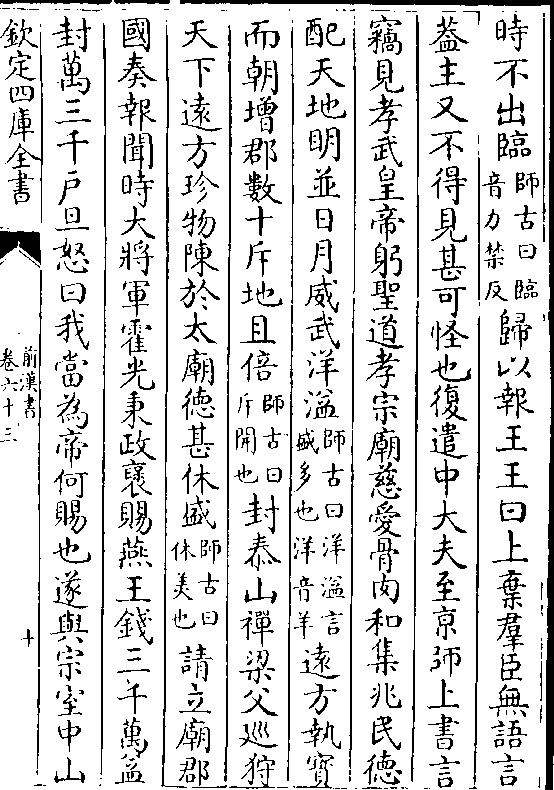 時不出臨師古曰臨音力禁反歸以報王王曰上棄羣臣無語言
葢主又不得見甚可怪也復遣中大夫至京師上書言
竊見孝武皇帝躬聖道孝宗廟慈愛骨肉和集兆民德
配天地明並日月威武洋溢師古曰洋溢言盛多也洋音羊遠方執寳
而朝增郡數十斥地且倍師古曰斥開也封泰山禪梁父巡狩
天下遠方珍物陳於太廟德甚休盛師古曰休美也請立廟郡
國奏報聞時大將軍霍光秉政襃賜燕王錢三千萬益
封萬三千戶旦怒曰我當為帝何賜也遂與宗室中山
欽定四庫全書
前漢書
卷六十三
十